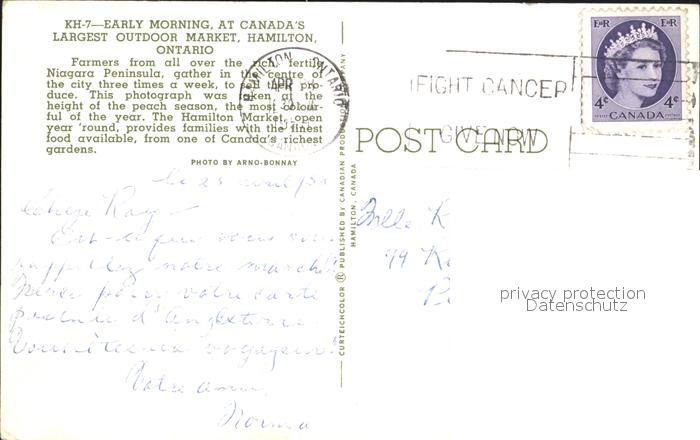 KH-7—EARLY MORNING, AT CANADA'S
LARGEST OUTDOOR MARKET, HAMILTON,
ONTARIO
Farmers from all over the rich, fertile
Niagara Peninsula, gather in the centre of
the city three times a week, to sell their pro-
duce. This photograph was taken at the
height of the peach season, the most colour-
ful of the year. The Hamilton Market, open
year 'round, provides families with the finest
food available, from one of Canada's richest
gardens.
PHOTO BY ARNO-BONNAY
Chère Ray –
Est-ce que vous
rappelez notre marché?
Merci pour votre carte
postale d'Angleterre.
Vous êtes un voyageur!
Votre amie,
Norma
CURTEICHCOLOR ® PUBLISHED BY CANADIAN PRODUCTION COMPANY
HAMILTON, CANADA
HAMILTON ONTARIO
APR
FIGHT CANCER
GIVE NOW
POST CARD
E II R E II R
4c 4c
CANADA
99
privacy protection
Datenschutz